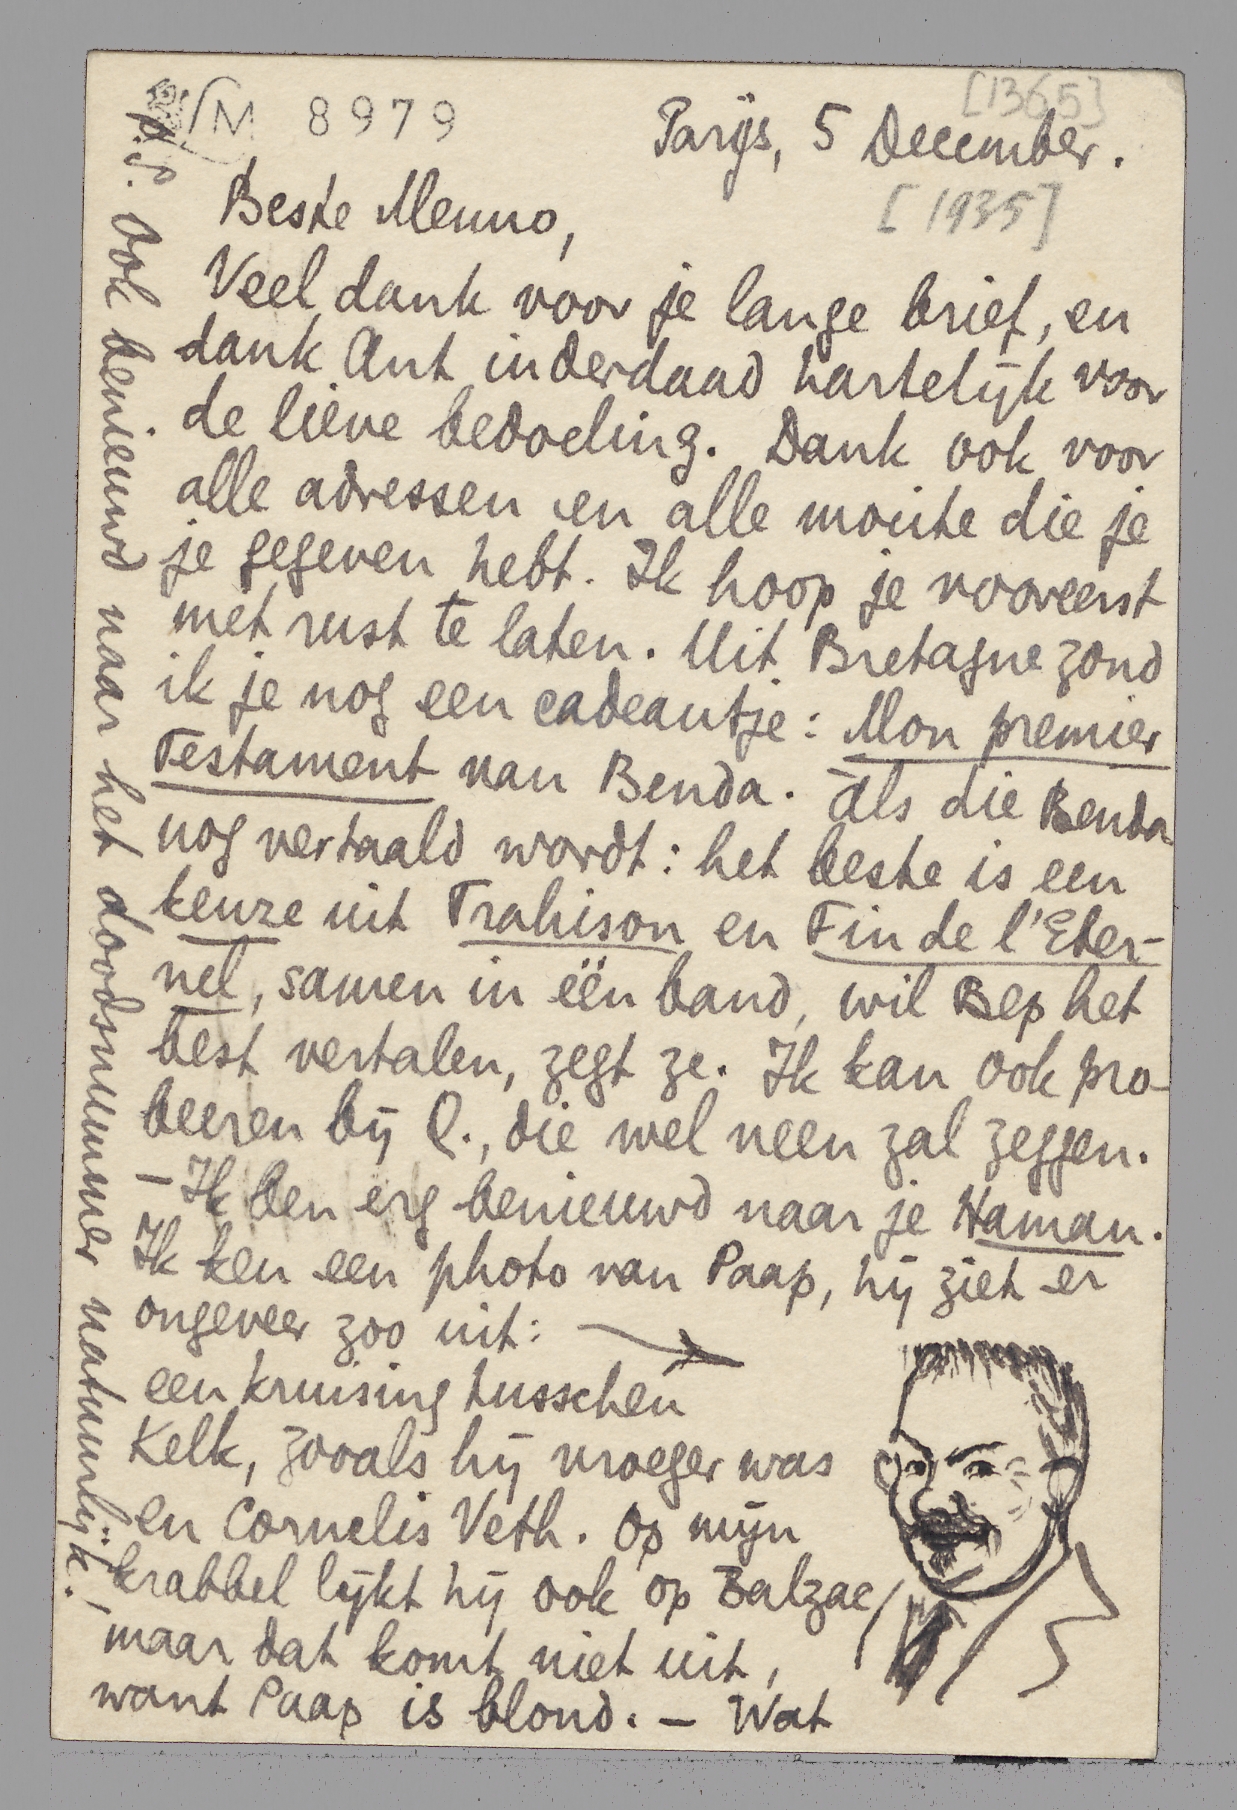 [1365]
LM 8979
Parijs, 5 December.
[1935]
Beste Menno,
Veel dank voor je lange brief, en
dank Ant inderdaad hartelijk voor
de lieve bedoeling. Dank ook voor
alle adressen en alle moeite die je
je gegeven hebt. Ik hoop je vooreerst
met rust te laten. Uit Bretagne zond
ik je nog een cadeautje: Mon premier
Testament van Benda. Als die Benda
nog vertaald wordt: het beste is een
keuze uit Trahison en Fin de l'Eter-
nel, samen in één band, wil Bep het
best vertalen, zegt ze. Ik kan ook pro-
beeren bij Q., die wel neen zal zeggen.
– Ik ben erg benieuwd naar je Haman.
Ik ken een photo van Paap, hij ziet er
ongeveer zoo uit:
een kruising tusschen
Kelk, zooals hij vroeger was
en Cornelis Veth. Op mijn
krabbel lijkt hij ook op Balzac,
maar dat komt niet uit,
want Paap is blond. – Wat
P.S. Ook benieuwd naar het doodsnummer natuurlijk.